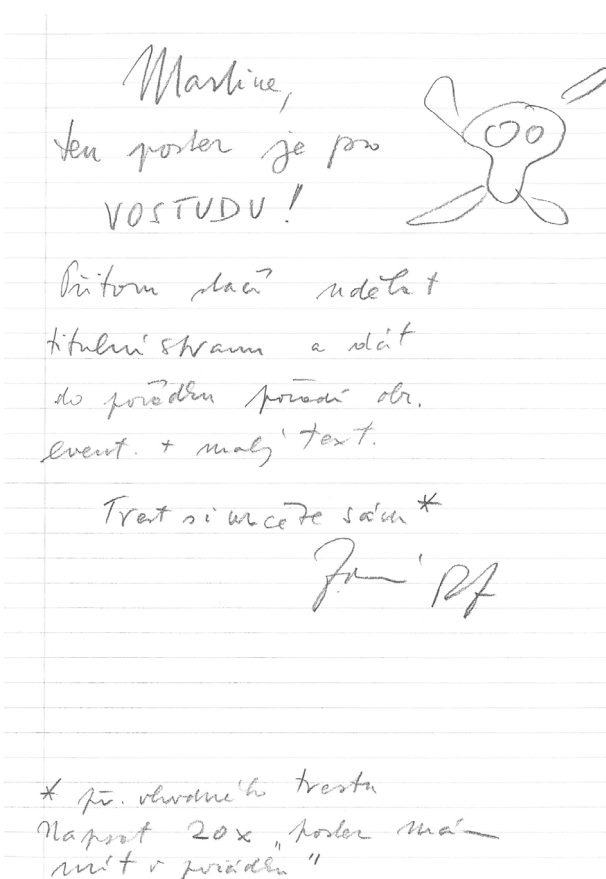 Martine,
ten poster je pro
VOSTUDU!
Přitom stačí udělat
titulní stranu a dát
do pořádku pořadí obr.
event. + malý text.
Trest si určete sám *
* př. vhodného trestu
Napsat 20x „poster má
mít v pořádku"